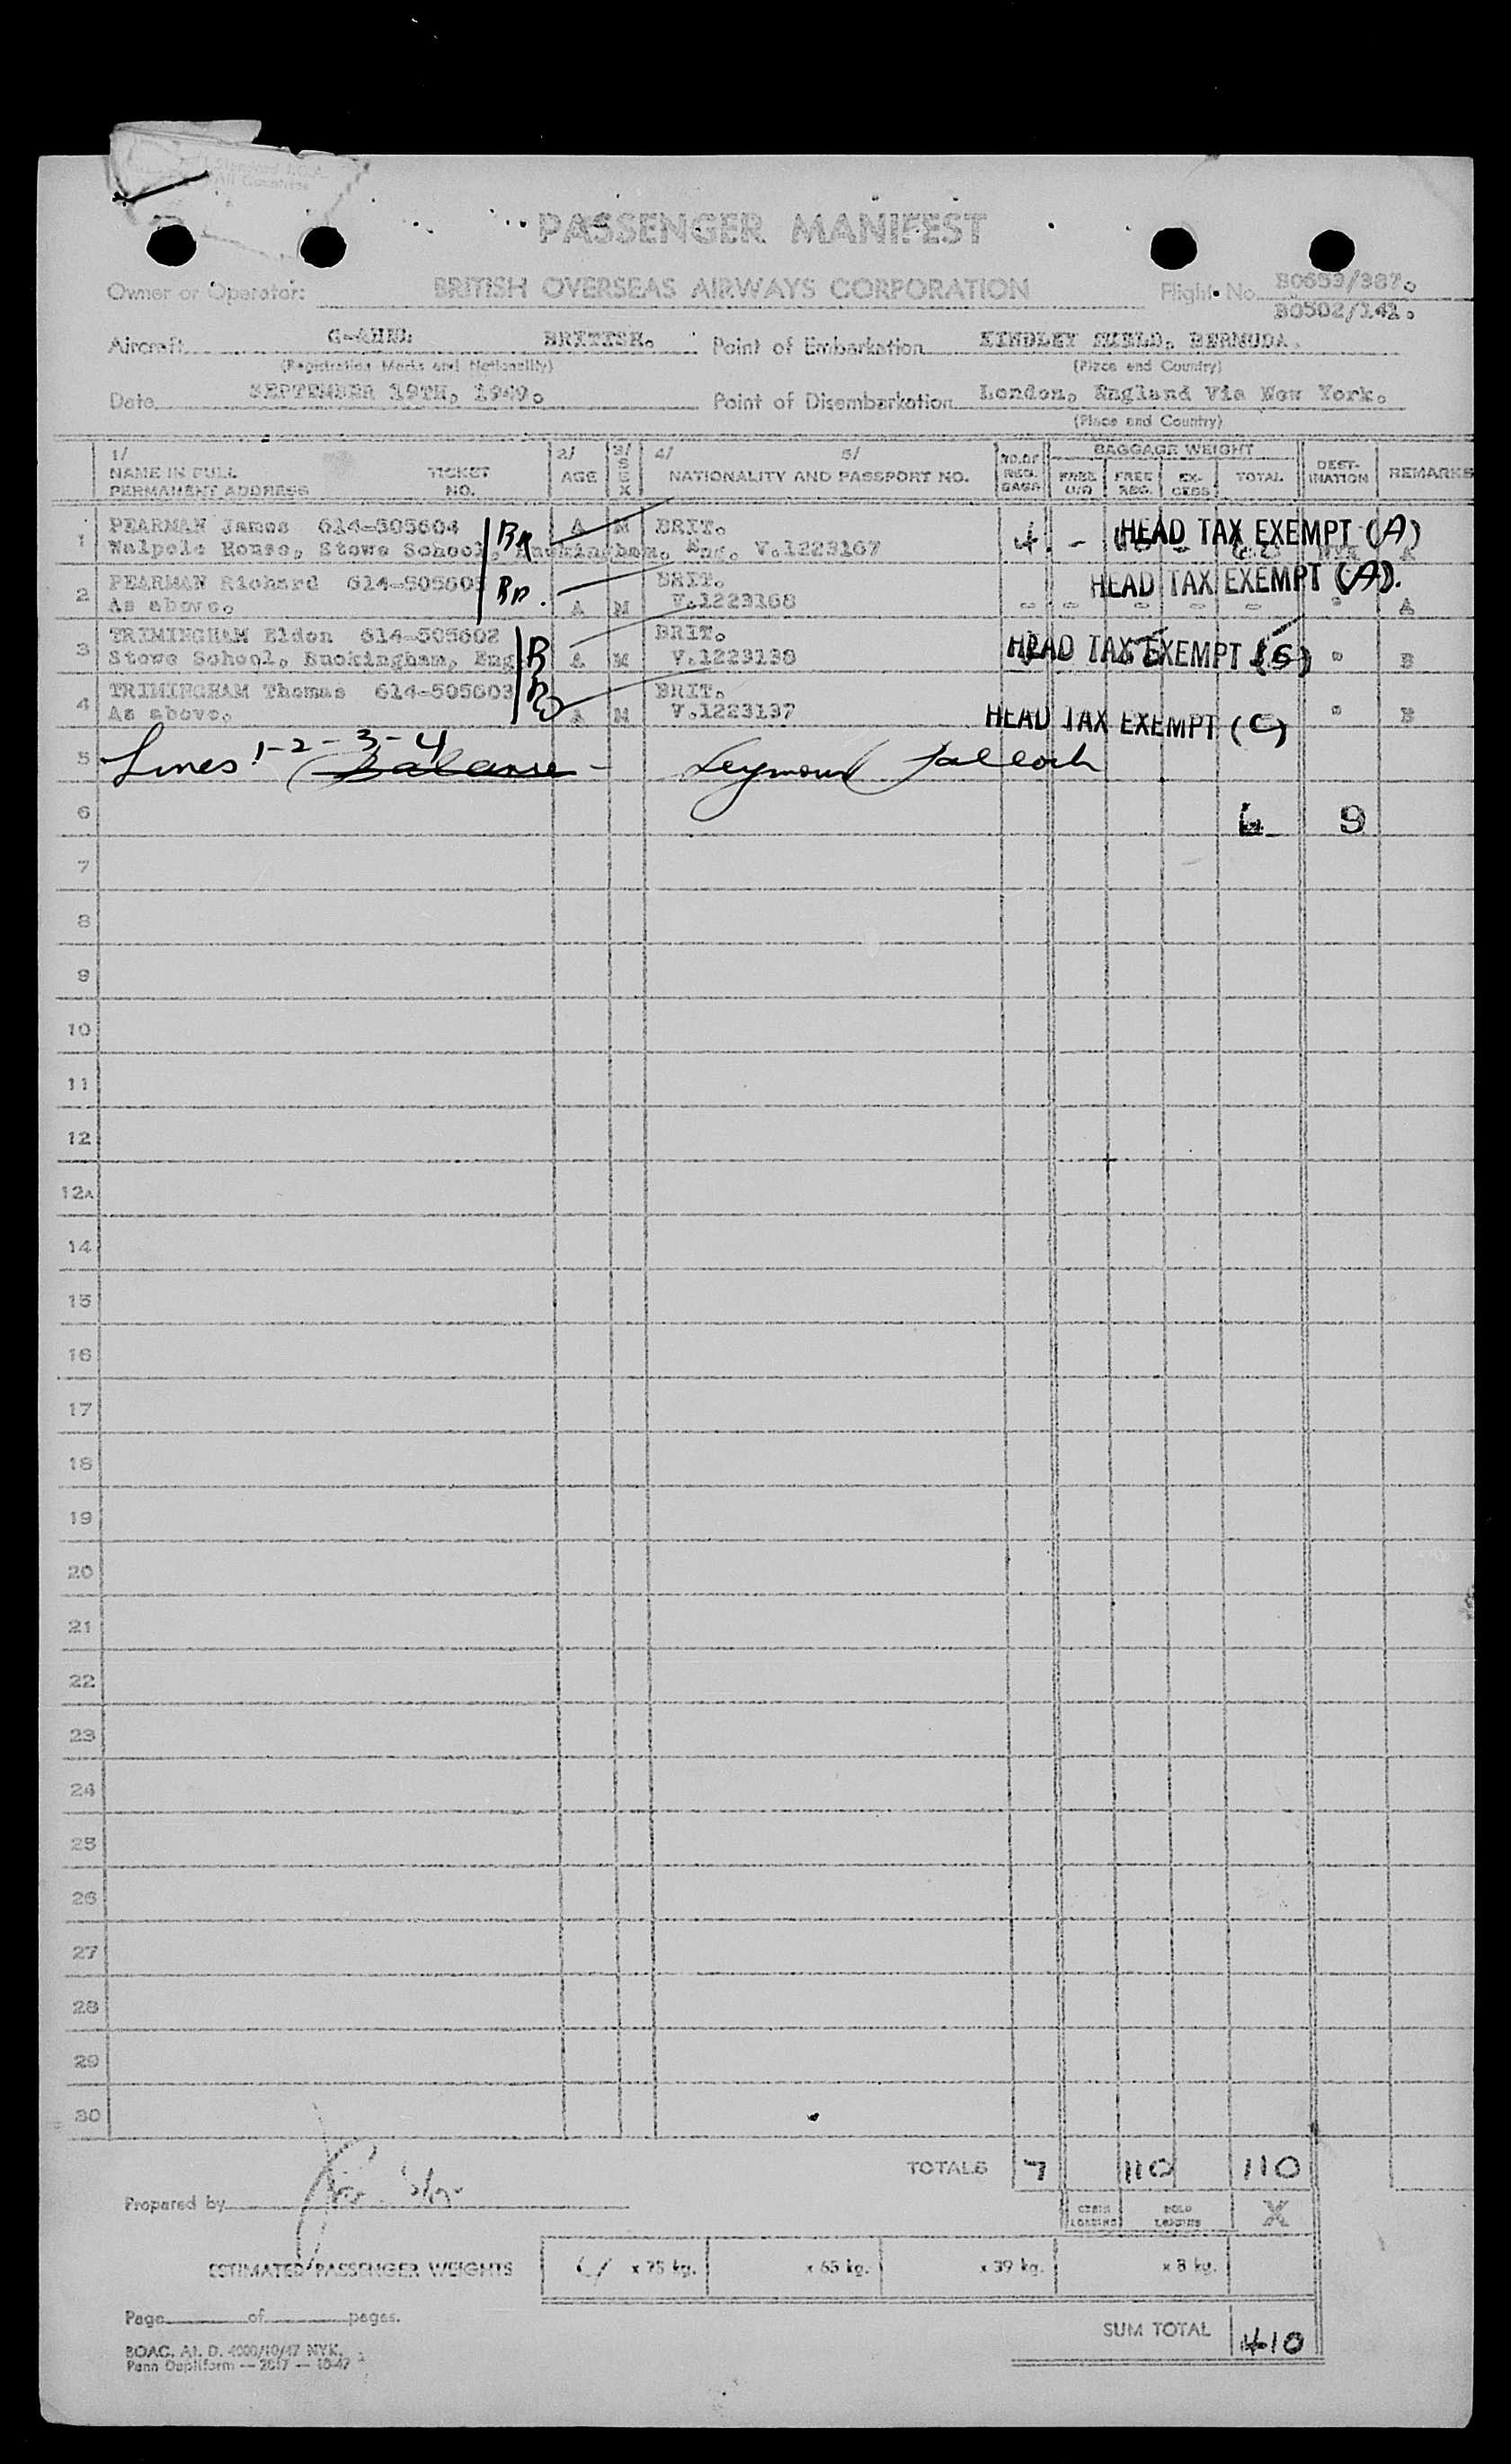 PASSENGER MANIFEST
Owner or Operator: BRITISH OVERSEAS AIRWAYS CORPORATION Flight No. B0653/387.
B0502/141.
Aircraft BRITISH. Point of Embarkation KINDLEY FIELD, BERMUDA.
(Registration Marks and Nationality) (Place and Country)
Date SEPTEMBER 19TH, 1949. Point of Disembarkation London, England Via New York.
(Place and Country)
1/ 2/ 3/ 4/ 5/ BAGGAGE WEIGHT
NAME IN FULL TICKET AGE SEX NATIONALITY AND PASSPORT NO. NO. OF REG. BAGS FREE U/O FREE REG. EX-CESS TOTAL DEST-INATION REMARKS
PERMANENT ADDRESS NO.
1 PEARMAN James 614-505604 A M BRIT. HEAD TAX EXEMPT (A)
Walpole House, Stowe School, Buckingham, Eng. V.1223167 4 - A
2 PEARMAN Richard 614-505605 BRIT. HEAD TAX EXEMPT (A).
As above. A M V.1223168 - - - - - " A
3 TRIMINGHAM Eldon 614-505602 BRIT.
Stowe School, Buckingham, Eng A M V.1223138 HEAD TAX EXEMPT (S) " B
4 TRIMINGHAM Thomas 614-505603 BRIT.
As above. A M V.1223137 HEAD TAX EXEMPT (C) " B
5 Lines 1-2-3-4 Balance - Seymour
6 9
7
8
9
10
11
12
12A
14
15
16
17
18
19
20
21
22
23
24
25
26
27
28
29
30
TOTALS 7 110 110
Prepared by
CABIN LOADING HOLD LOADING X
ESTIMATED PASSENGER WEIGHTS 4 x 75 kg. x 65 kg. x 39 kg. x 8 kg.
Page of pages.
SUM TOTAL 410
BOAC. A1. D. 4000/10/47 NYK.
Penn Dupliform — 2817 — 10-47